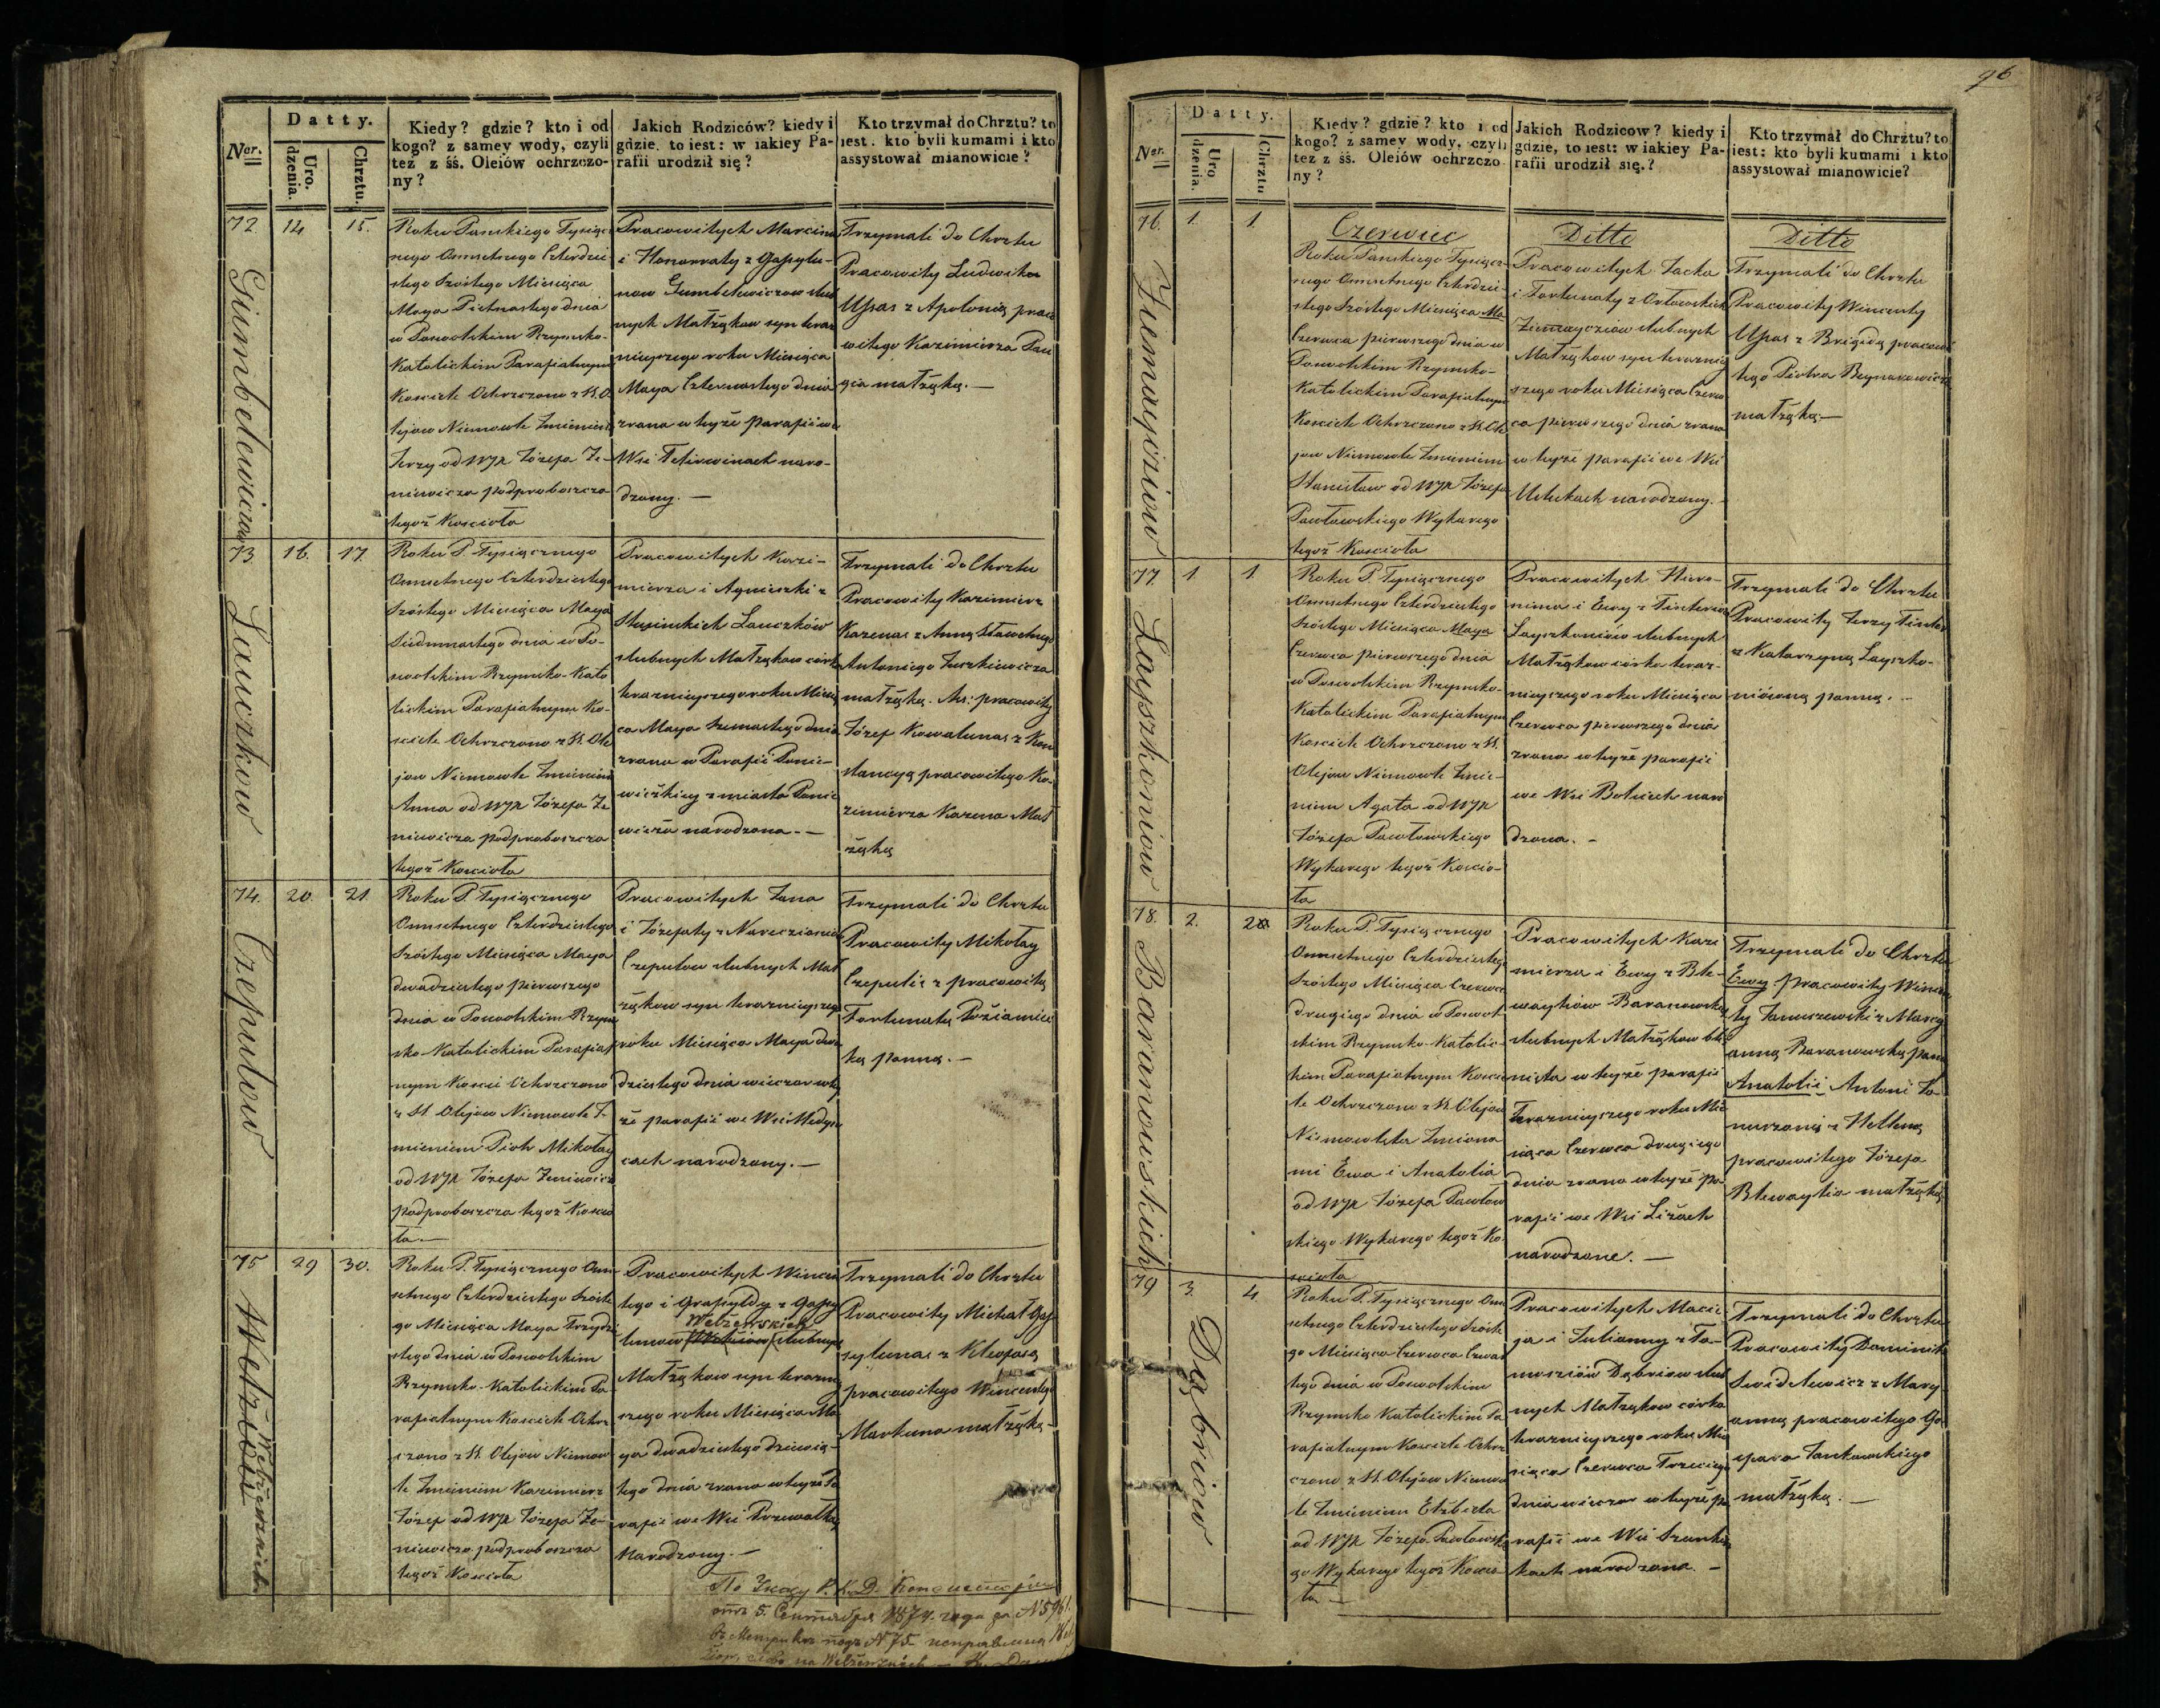 96
Datty.
Ner.
Uro.
dzenia.
Chrztu.
Kiedy? gdzie? kto i od
kogo? z samey wody, czyli
też z śś. Oleiów ochrzczo-
ny?
Jakich Rodziców? kiedy i
gdzie, to iest: w iakiey Pa-
rafii urodził się?
Kto trzymał do Chrztu? to
iest. kto byli kumami i kto
assystował mianowicie?
72.
14
15.
Gumbelewiczow
Roku Panskiego Tysiącz
nego Osmsetnego Czterdzie
stego Szóstego Miesiąca
Maya Pietnastego dnia
w Poswolskim Rzymsko-
Katolickim Parafialnym
Kosciele Ochrzczono z SS. O
lejow Niemowle Imieniem
Jerzy od WJX Józefa Ze-
niewicza podproboszcza
tegoż Koscioła
Pracowitych Marcina
i Honorraty z Gasylu-
now Gumbelewiczow slub
nych Małżąkow syn teraz
nieyszego roku Miesiąca
Maya Czternastego dnia
zrana w teyże parafii we
Wsi narodzony.—
Trzymali do Chrztu
Pracowity Ludwika
Upas z Apolonią praco
witego Kazimierza
małżąką.—
73.
16.
17.
Lauczkow
Roku P. Tysiącznego
Osmsetnego Czterdziestego
Szóstego Miesiąca Maya
Siedmnastego dnia w Po-
swolskim Rzymsko-Kato
lickim Parafialnym Ko-
sciele Ochrzczono z SS. Ole
jow Niemowle Imieniem
Anna od WJX Józefa Ze
niewicza podproboszcza
tegoż Koscioła
Pracowitych Kazi-
mierza i Agnieszki z
Lauczków
slubnych Małżąkow córka
teraznieyszego roku Miesią
ca Maya Szesnastego dnia
zrana w Parafii Ponie-
wieżkiey z miasta Ponie
wieża narodzona.—
Trzymali do Chrztu
Pracowity Kazimierz
Karenas z Anną Sławetnego
Antoniego Juszkiewicza
małżąką. As: pracowity
Józef Kowalunas z Kon
stancyą pracowitego Ka-
zimierza Karena Mał
żąką
74.
20.
21
Czepulow
Roku P. Tysiącznego
Osmsetnego Czterdziestego
Szóstego Miesiąca Maya
dwadziestego pierwszego
dnia w Poswolskim Rzym
sko-Katolickim Parafial
nym Kosciele Ochrzczono
z SS. Olejow Niemowle I-
mieniem Piotr Mikołay
od WJX Józefa Zeniewicz
podproboszcza tegoż Koscio
ła.—
Pracowitych Jana
i Józefaty z
Czepulow slubnych Mał
żąkow syn teraznieyszego
roku Miesiąca Maya dwa
dziestego dnia wieczor w tey
że parafii we Wsi
narodzony.—
Trzymali do Chrztu
Pracowity Mikołay
Czepulis z pracowitą
Fortunatą
panną.—
75
29
30.
Welżenskich
Roku P. Tysiącznego Osm
setnego Czterdziestego Szóste
go Miesiąca Maya Trzydzie
stego dnia w Poswolskim
Rzymsko-Katolickim Pa
rafialnym Kosciele Ochrz
czono z SS. Olejow Niemow
le Imieniem Kazimierz
Józef od WJX Józefa Ze-
niewicza podproboszcza
tegoż Koscioła
Pracowitych Wincen
tego i Grasyldy z Gasy
Welżenskich
lunow slubnych
Małżąkow syn teraznie
szego roku Miesiąca Ma
ya dwadziestego dziewią-
tego dnia zrana w teyże Pa
rafii we Wsi Przewałkach
Narodzony.—
Trzymali do Chrztu
Pracowity Michał Ga
sylunas z Kleofasą
pracowitego Wincentego
Martuna małżąką.—
По Указу Р.К.Д. Консисторіи
отъ 5. Сентября 1874. года за N 5961.
въ Метрикѣ подъ N 75 исправлена
Datty.
Ner.
Uro
dzenia.
Chrztu
Kiedy? gdzie? kto i od
kogo? z samey wody, czyli
też z śś. Oleiów ochrzczo
ny?
Jakich Rodzicow? kiedy i
gdzie, to iest: w iakiey Pa-
rafii urodził się.?
Kto trzymał do Chrztu? to
iest: kto byli kumami i kto
assystował mianowicie?
76.
1.
1.
Ziemayciow
Czerwiec
Roku Panskiego Tysiącz
nego Osmsetnego Czterdzie-
stego Szóstego Miesiąca Ma
Czerwca pierwszego dnia w
Poswolskim Rzymsko-
Katolickim Parafialnym
Kosciele Ochrzczono z SS. Ole
jow Niemowle Imieniem
Stanisław od WJX Józefa
Pawłowskiego Wykarego
tegoż Koscioła
Ditto
Pracowitych Jacka
i Fortunaty z Orłowskich
Ziemayciow slubnych
Małżąkow syn terazniey
szego roku Miesiąca Czerw
ca pierwszego dnia zrana
w teyże parafii we Wsi
narodzony.
Ditto
Trzymali do Chrztu
Pracowity Wincenty
Upas z Brigidą pracowi
tego Piotra Beynarowicza
małżąką.—
77.
1.
1.
Layszkoniow
Roku P. Tysiącznego
Osmsetnego Czterdziestego
Szóstego Miesiąca Maya
Czerwca pierwszego dnia
w Poswolskim Rzymsko-
Katolickim Parafialnym
Kosciele Ochrzczono z SS.
Olejow Niemowle Imie-
niem Agata od WJX
Józefa Pawłowskiego
Wykarego tegoż Koscio-
ła
Pracowitych Hiero-
nima i Ewy z
Layszkoniów slubnych
Małżąkow córka teraz-
nieyszego roku Miesiąca
Czerwca pierwszego dnia
zrana w teyże parafii
we Wsi naro
dzona.—
Trzymali do Chrztu
Pracowity Jerzy
z Katarzyną Layszko-
niówną panną.—
78.
2.
2
Baranowskich
Roku P. Tysiącznego
Osmsetnego Czterdziestego
Szóstego Miesiąca Czerwca
drugiego dnia w Poswol
skim Rzymsko-Katolic-
kim Parafialnym Koscie
le Ochrzczono z SS. Olejow
Niemowlęta Imiona
mi Ewa i Anatolia
od WJX Józefa Pawłow
skiego Wykarego tegoż Ko
scioła
Pracowitych Kazi
mierza i Ewy z Ble-
waytiów Baranowskich
slubnych Małżąkow bliz
nięta w teyże parafii
Teraznieyszego roku Mie
siąca Czerwca drugiego
dnia zrana w teyże pa
rafii we Wsi Liżach
narodzone.—
Trzymali do Chrztu
Ewy pracowity Wincen
ty Januszewski z Mary
anną Baranowską panną
Anatolii Antoni To-
z Helleną
pracowitego Józefa
Blewaytia małżąką
79
3.
4.
Dąbriow
Roku P. Tysiącznego Osm
setnego Czterdziestego Szóste
go Miesiąca Czerwca Czwar
tego dnia w Poswolskim
Rzymsko Katolickim Pa
rafialnym Kosciele Ochrz
czono z SS. Olejow Niemow
le Imieniem Elżbieta
od WJX Józefa Pawłowskie
go Wykarego tegoż Koscio
ła—
Pracowitych Macie
ja i Julianny z To-
Dąbriow slub
nych Małżąkow córka
teraznieyszego roku Mie
siąca Czerwca Trzeciego
dnia wieczor w teyże pa
rafii we Wsi
narodzona.—
Trzymali do Chrztu
Pracowity Dominik
z Mary
anną pracowitego Ga
spara Jankowskiego
małżąką.—